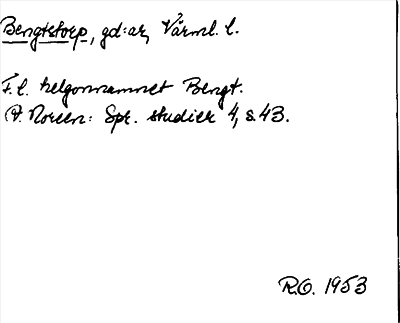 Bengtstorp, gd:ar, Värml. l.
F.l. helgonnamnet Bengt.
A. Noreen: Spr. studier 4, s. 43.
R.O. 1953